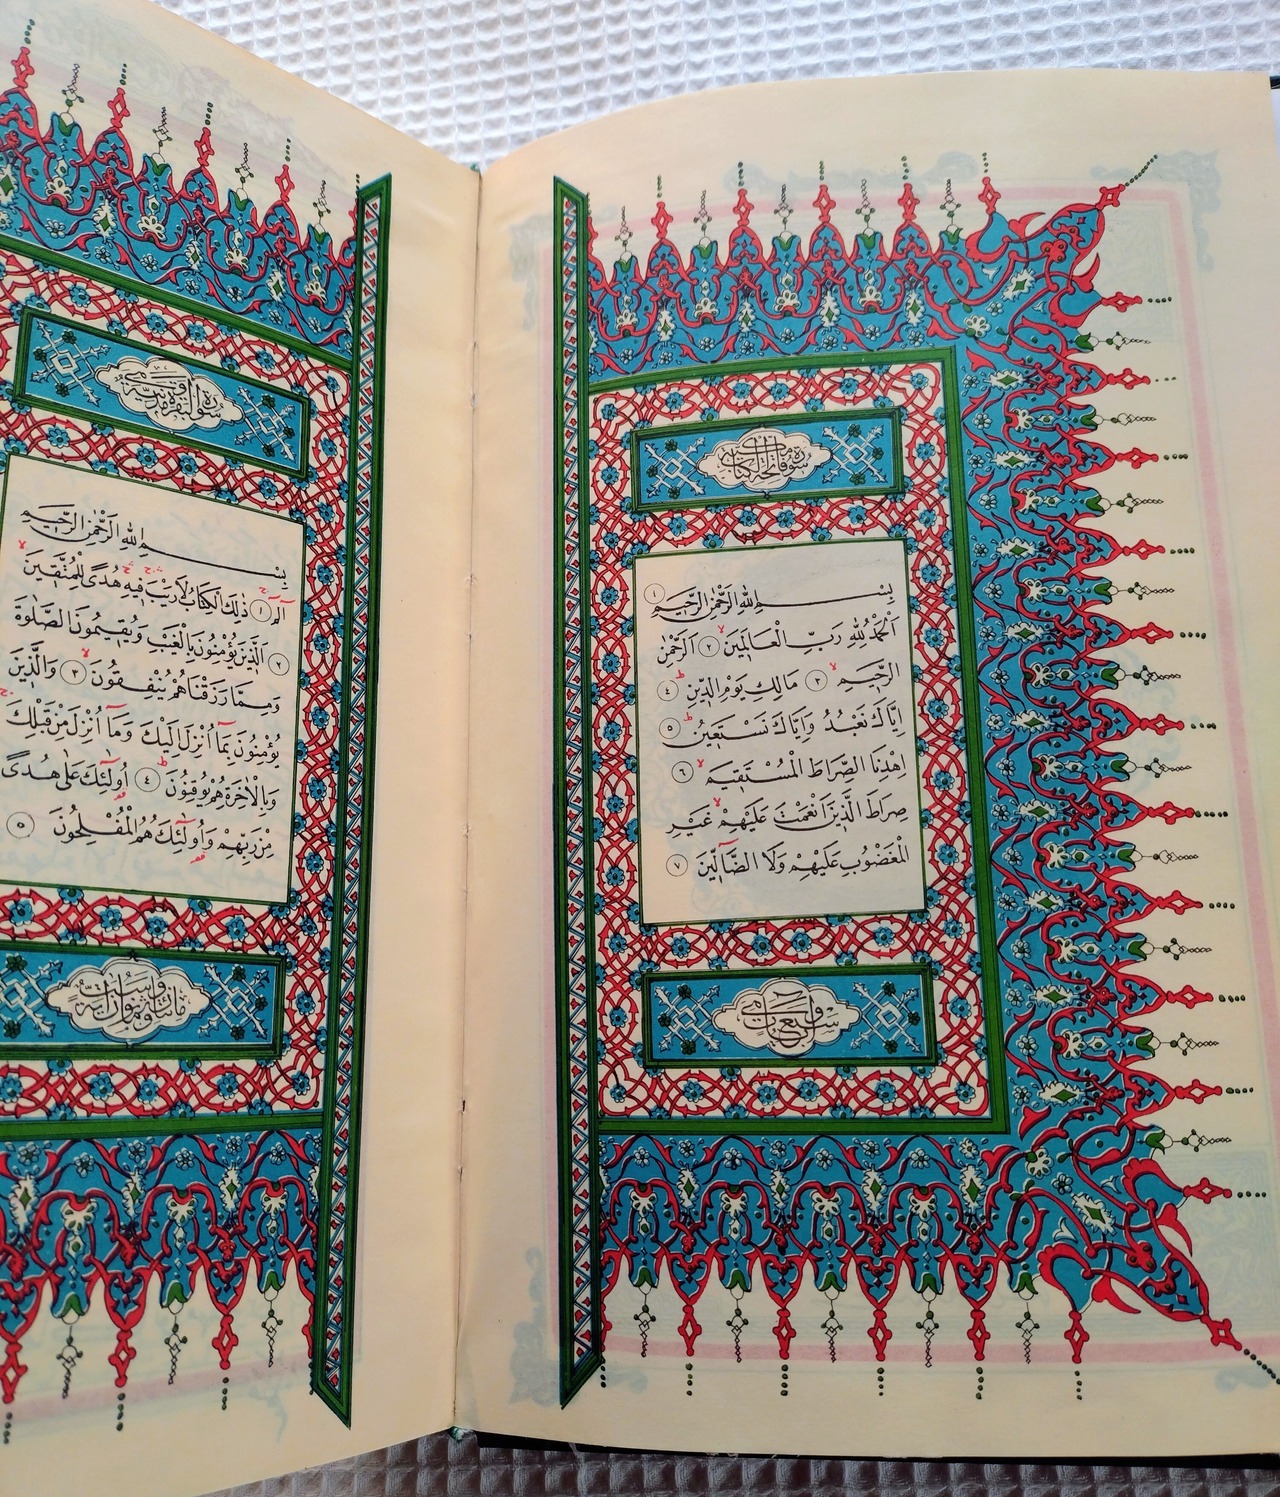 سورة فاتحة الكتاب
بِسْمِ اللهِ الرَّحْمٰنِ الرَّحِيمِ ١
اَلْحَمْدُ لِلّٰهِ رَبِّ الْعَالَمِينَ ٢ اَلرَّحْمٰنِ
الرَّحِيمِ ٣ مَالِكِ يَوْمِ الدِّينِ ٤
اِيَّاكَ نَعْبُدُ وَاِيَّاكَ نَسْتَعِينُ ٥
اِهْدِنَا الصِّرَاطَ الْمُسْتَقِيمَ ٦
صِرَاطَ الَّذِينَ اَنْعَمْتَ عَلَيْهِمْ غَيْرِ
الْمَغْضُوبِ عَلَيْهِمْ وَلَا الضَّالِّينَ ٧
سورة البقرة
بِسْمِ اللهِ الرَّحْمٰنِ الرَّحِيمِ
الٓمٓ ١ ذٰلِكَ الْكِتَابُ لَا رَيْبَ فِيهِ هُدًى لِلْمُتَّقِينَ
٢ اَلَّذِينَ يُؤْمِنُونَ بِالْغَيْبِ وَيُقِيمُونَ الصَّلٰوةَ
وَمِمَّا رَزَقْنَاهُمْ يُنْفِقُونَ ٣ وَالَّذِينَ
يُؤْمِنُونَ بِمَٓا اُنْزِلَ اِلَيْكَ وَمَٓا اُنْزِلَ مِنْ قَبْلِكَ
وَبِالْاٰخِرَةِ هُمْ يُوقِنُونَ ٤ اُولٰٓئِكَ عَلٰى هُدًى
مِنْ رَبِّهِمْ وَاُولٰٓئِكَ هُمُ الْمُفْلِحُونَ ٥